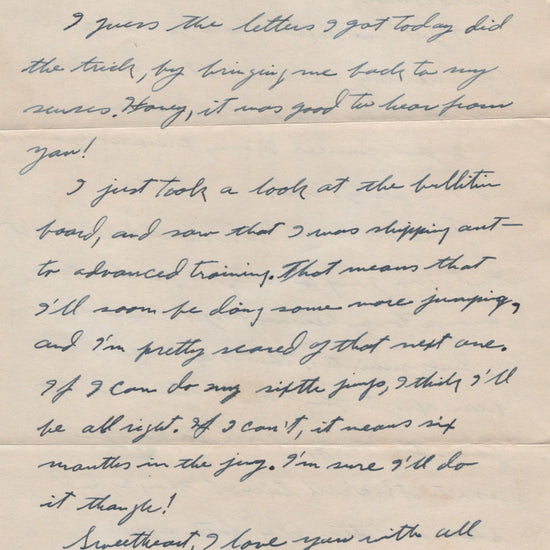 I guess the letters I got today did
the trick, by bringing me back to my
senses. Honey, it was good to hear from
you!
I just took a look at the bullitin
board, and saw that I was shipping out
to advanced training. That means that
I'll soon be doing some more jumping,
and I'm pretty scared of that next one.
If I can do my sixth jump, I think I'll
be all right. If I can't, it means six
months in the jug. I'm sure I'll do
it though!
Sweetheart, I love you with all